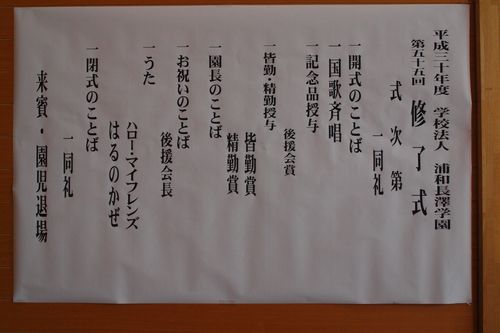 平成三十年度 学校法人 浦和長澤学園
第五十五回 修了式
式次第
一同礼
一開式のことば
一国歌斉唱
一記念品授与
後援会賞
一皆勤・精勤授与
皆勤賞
精勤賞
一園長のことば
一お祝いのことば
後援会長
一うた
ハロー・マイフレンズ
はるのかぜ
一閉式のことば
一同礼
来賓・園児退場